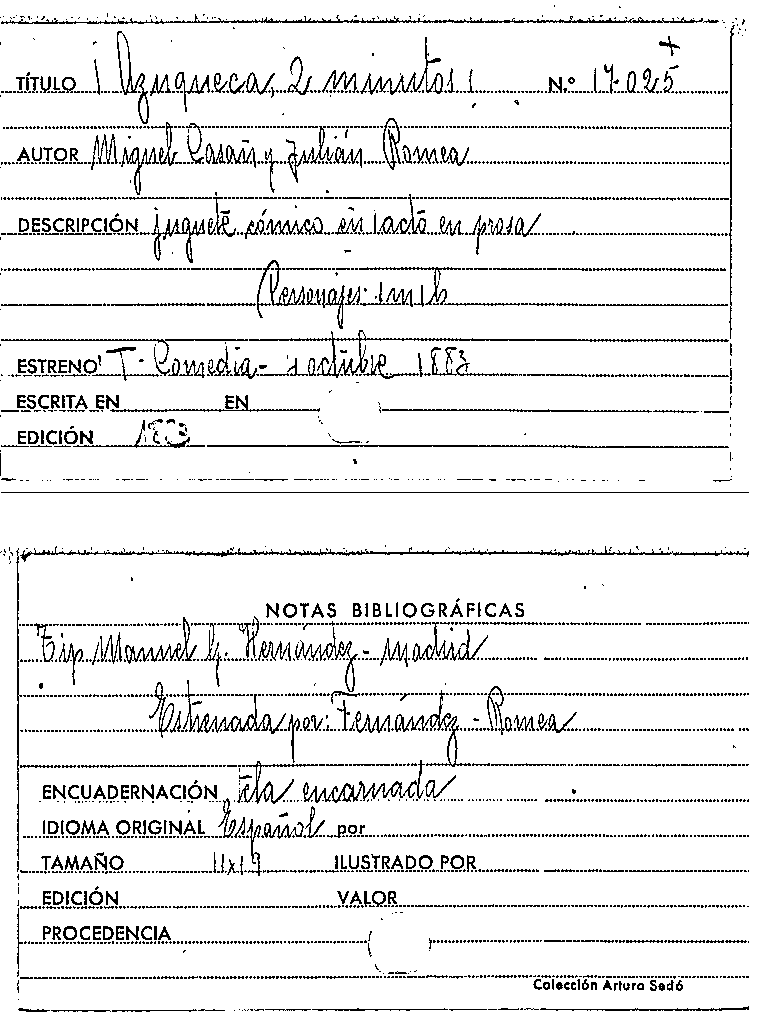 TÍTULO ¡Azuqueca, 2 minutos! N.º 17.025 +
AUTOR Miguel Casañ y Julián Romea
DESCRIPCIÓN juguete cómico en 1 acto en prosa
Personajes: 1m 1h
ESTRENO T. Comedia - 4 octubre 1883
ESCRITA EN EN
EDICIÓN 1883
NOTAS BIBLIOGRÁFICAS
Tip. Manuel G. Hernández - Madrid
Estrenada por: Fernández - Romea
ENCUADERNACIÓN tela encarnada
IDIOMA ORIGINAL Español por
TAMAÑO 11x19 ILUSTRADO POR
EDICIÓN VALOR
PROCEDENCIA
Colección Arturo Sedó